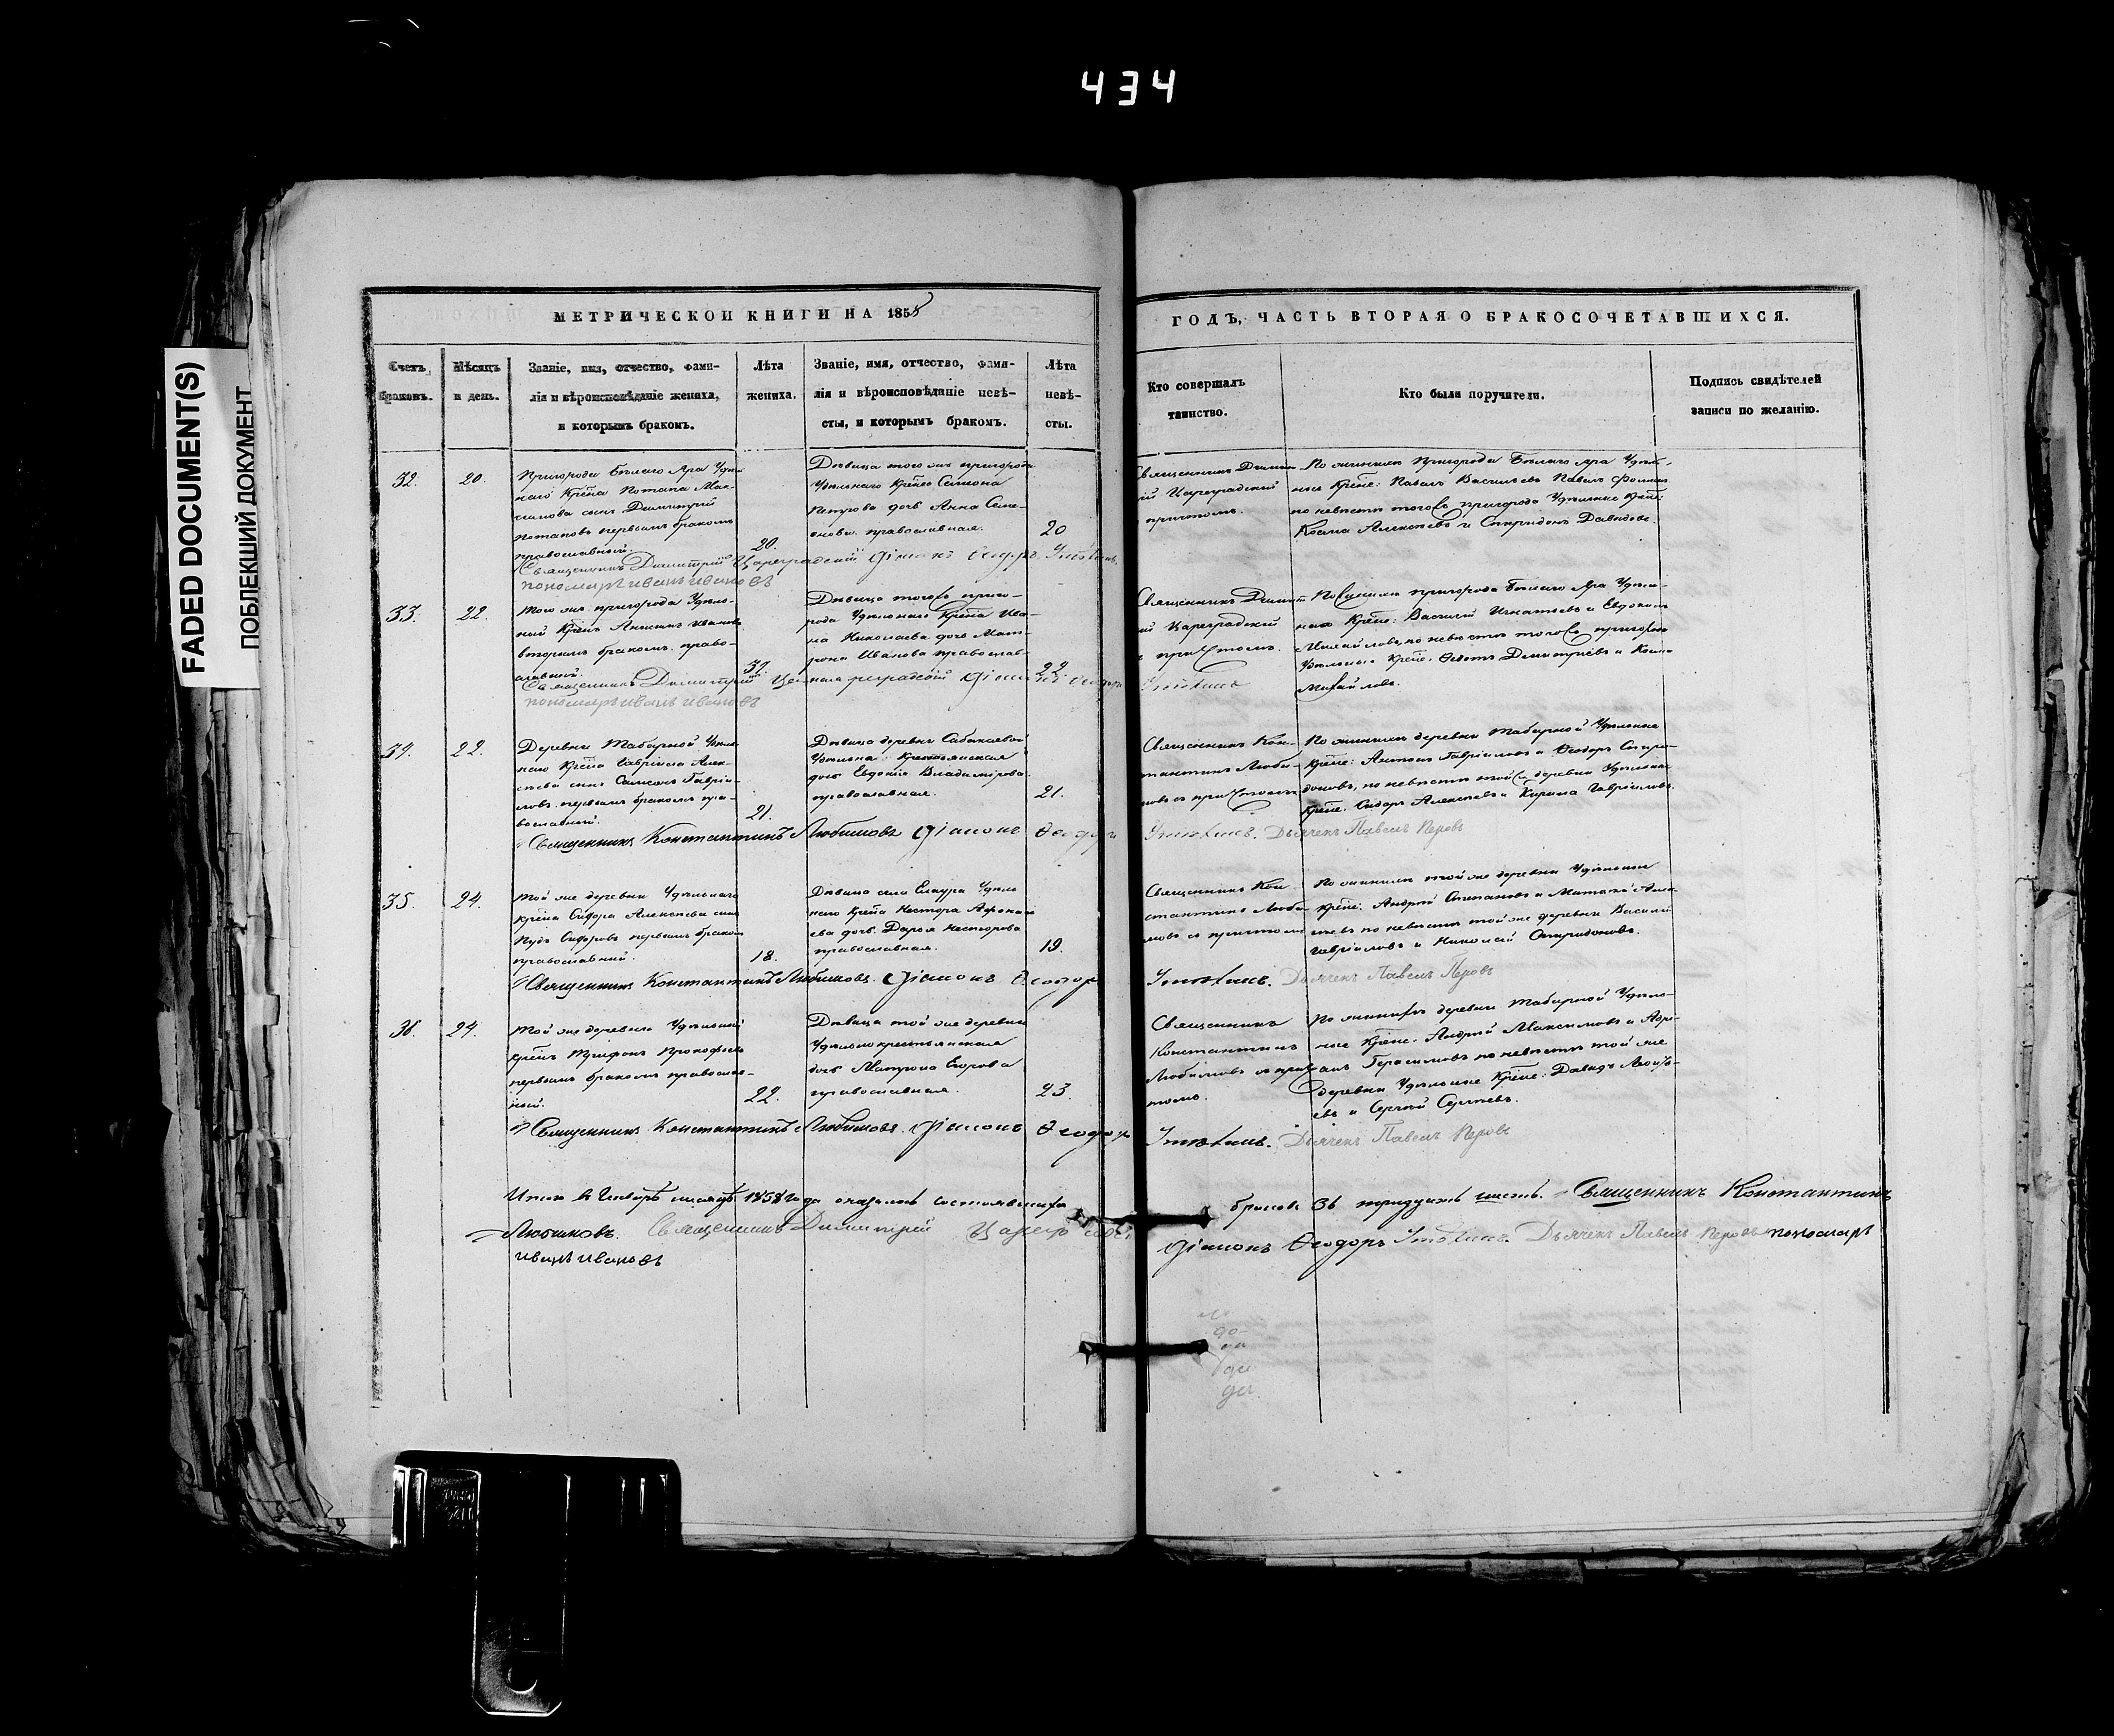 434
FADED DOCUMENT(S)
ПОБЛЕКШИЙ ДОКУМЕНТ
МЕТРИЧЕСКОЙ КНИГИ НА 1858
ГОДЪ, ЧАСТЬ ВТОРАЯ О БРАКОСОЧЕТАВШИХСЯ.
Счетъ браковъ.
Мѣсяцъ и день.
Званіе, имя, отчество, фами-
лія и вѣроисповѣданіе жениха,
и которымъ бракомъ.
Лѣта
жениха.
Званіе, имя, отчество, фами-
лія и вѣроисповѣданіе невѣ-
сты, и которымъ бракомъ.
Лѣта
невѣ-
сты.
Кто совершалъ
таинство.
Кто были поручители.
Подпись свидѣтелей
записи по желанію.
32.
20.
Пригорода Бѣлаго Яра Удѣль-
наго Крѣна Потапа Мак-
симова сынъ Димитрій
Потаповъ первымъ бракомъ
православный.
20.
Дѣвица того же пригорода
Удѣльнаго Крѣна Семена
Петрова дочь Анна Семе-
нова православная.
20
Священникъ Димит-
рій Цареградскій
причтомъ.
По женихѣ Пригорода Бѣлаго Яра Удѣль-
ные Крѣне: Павелъ Васильевъ Павелъ
по невѣстѣ того же пригорода Удѣльные Крѣне:
Косма Алексѣевъ и Спиридонъ Давидовъ.
Священникъ Димитрій Цареградскій Діаконъ Ѳеодоръ
пономарь иванъ ивановъ
33.
22.
Того же пригорода Удѣль-
ный Крѣнъ Ивановъ
вторымъ бракомъ право-
славный.
37.
Дѣвица того же приго-
рода Удѣльнаго Крѣна Ива-
на Николаева дочь Мат-
рона Иванова православ-
ная
22
Священникъ Димит-
рій Цареградскій
съ причтомъ.
По женихѣ пригорода Бѣлаго Яра Удѣль-
ные Крѣне: Василій Игнатьевъ и Евдокимъ
Михайловъ, по невѣстѣ того же пригорода
Удѣльные Крѣне: Димитріевъ и Козма
Михайловъ.
Священникъ Димитрій Цареградскій Діаконъ Ѳеодоръ
пономарь иванъ ивановъ
34.
22.
Деревни Табарной Удѣль-
наго Крѣна Гавріила Алек-
сѣева сынъ Самсонъ Гаврі-
ловъ первымъ бракомъ пра-
вославный.
21.
Дѣвица деревни Сабакаевой
Удѣльная Крестьянская
дочь Евдокія Владимірова
православная.
21.
Священникъ Кон-
стантинъ Люби-
мовъ съ причтомъ
По женихѣ деревни Табарной Удѣльные
Крѣне: Антонъ Гавріиловъ и Ѳеодоръ Спири-
доновъ, по невѣстѣ той же деревни Удѣльные
Крѣне: Сидоръ Алексѣевъ и Кирила Гавріиловъ.
Священникъ Константинъ Любимовъ Діаконъ Ѳеодоръ
Дьячекъ Павелъ Перовъ
35.
24.
Той же деревни Удѣльнаго
Крѣна Сидора Алексѣева сынъ
Сидоровъ первымъ бракомъ
православный.
18.
Дѣвица села Удѣль-
наго Крѣна Нестора Афонась-
ева дочь Дарья Несторова
православная.
19.
Священникъ Кон-
стантинъ Люби-
мовъ съ причтомъ
По женихѣ той же деревни Удѣльные
Крѣне: Андрей Степановъ и
по невѣстѣ той же деревни Василій
Гавріиловъ и Николай Спиридоновъ.
Священникъ Константинъ Любимовъ. Діаконъ Ѳеодоръ
Дьячекъ Павелъ Перовъ
36.
24.
Той же деревни Удѣльный
Крѣнъ Трифонъ Прокофьевъ
первымъ бракомъ православ-
ный.
22.
Дѣвица той же деревни
Удѣльнокрестьянская
дочь Матрона Егорова
православная.
23.
Священникъ
Константинъ
Любимовъ съ прич-
томъ.
По женихѣ деревни Табарной Удѣль-
ные Крѣне: Андрей Максимовъ и Адрі-
анъ Герасимовъ по невѣстѣ той же
деревни Удѣльные Крѣне: Давидъ
и Сергѣй Сергѣевъ.
Священникъ Константинъ Любимовъ. Діаконъ Ѳеодоръ
Дьячекъ Павелъ Перовъ
Итого въ Январѣ мѣсяцѣ 1858 года бракомъ состоявшихъ
браковъ 36 тридцать шесть. Священникъ Константинъ
Любимовъ. Священникъ Димитрій
Діаконъ Ѳеодоръ Дьячекъ Павелъ Перовъ пономарь
иванъ ивановъ